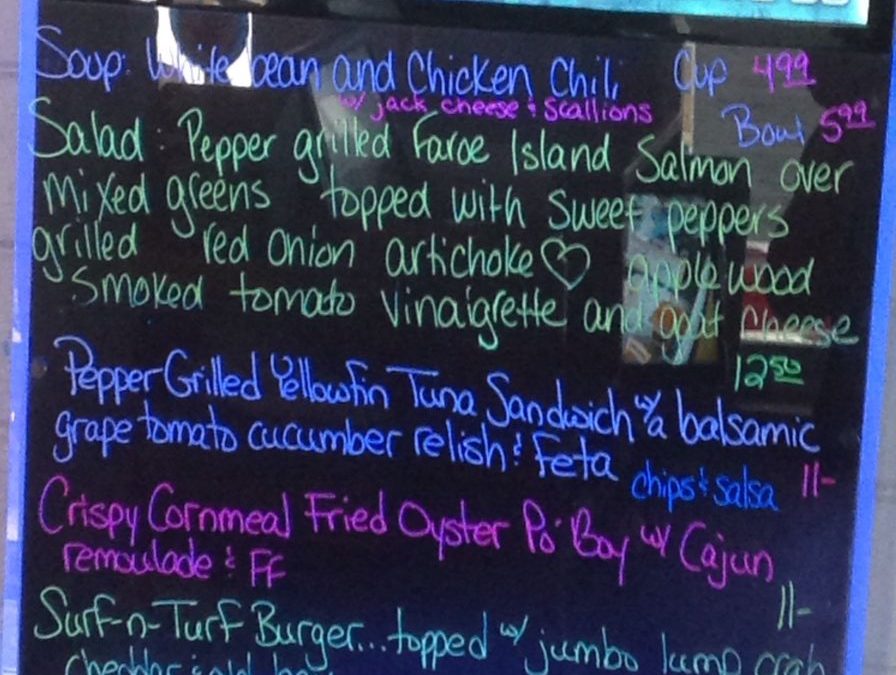 Soup: White bean and Chicken Chili Cup 4.99
w/ jack cheese & scallions
Bowl 5.99
Salad: Pepper grilled Faroe Island Salmon over
mixed greens topped with sweet peppers
grilled red onion artichoke♡ applewood
smoked tomato vinaigrette and goat cheese
12.50
Pepper Grilled Yellowfin Tuna Sandwich w/a balsamic
grape tomato cucumber relish & Feta
chips & salsa 11-
Crispy Cornmeal Fried Oyster Po' Boy w/ Cajun
remoulade & FF
11-
Surf-n-Turf Burger...topped w/ jumbo lump crab
cheddar